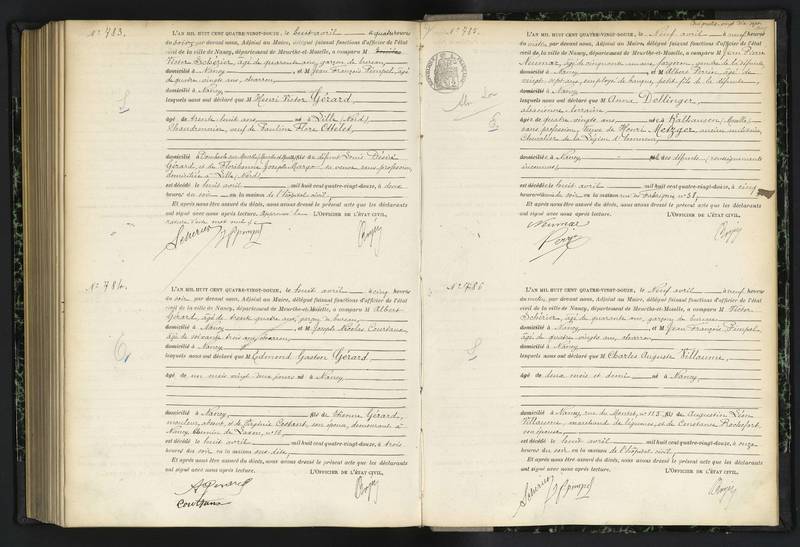 N° 783.
L'AN MIL HUIT CENT QUATRE-VINGT-DOUZE, le huit avril à quatre heures
du soir, par devant nous, Adjoint au Maire, délégué faisant fonctions d'officier de l'état
civil de la ville de Nancy, département de Meurthe-et-Moselle, a comparu M
Victor Schérier, âgé de quarante ans, garçon de bureau,
domicilié à Nancy et M Jean François Pimpel, âgé
de quatre vingts ans, charron,
domicilié à Nancy
lesquels nous ont déclaré que M Henri Victor Gérard,
âgé de trente huit ans né à Lille (Nord),
Chaudronnier, veuf de Pauline Flore Ottelet,
domicilié à fils de défunt Louis Désiré
Gérard, et de Joseph sa veuve, sans profession,
domiciliée à Lille, Nord,
est décédé le huit avril mil huit cent quatre-vingt-douze, à deux
heures du soir en la maison de l'hôpital civil,
Et après nous être assuré du décès, nous avons dressé le présent acte que les déclarants
ont signé avec nous après lecture. L'OFFICIER DE L'ÉTAT CIVIL,
N° 784.
L'AN MIL HUIT CENT QUATRE-VINGT-DOUZE, le huit avril à cinq heures
du soir, par devant nous, Adjoint au Maire, délégué faisant fonctions d'officier de l'état
civil de la ville de Nancy, département de Meurthe-et-Moselle, a comparu M Albert
Gérard, âgé de trente quatre ans, garçon de bureau,
domicilié à Nancy et M Joseph Nicolas Courteaux
âgé de soixante trois ans, charron,
domicilié à Nancy
lesquels nous ont déclaré que M Edmond Gaston Gérard,
âgé de un mois vingt deux jours né à Nancy,
domicilié à Nancy, fils de Etienne Gérard,
mouleur, absent, et de Virginie son épouse, demeurant à
Nancy, chemin de
est décédé le huit avril mil huit cent quatre-vingt-douze, à trois
heures du soir en la maison sus-dite,
Et après nous être assuré du décès, nous avons dressé le présent acte que les déclarants
ont signé avec nous après lecture. L'OFFICIER DE L'ÉTAT CIVIL,
N° 785.
L'AN MIL HUIT CENT QUATRE-VINGT-DOUZE, le Neuf avril à neuf heures
du matin, par devant nous, Adjoint au Maire, délégué faisant fonctions d'officier de l'état
civil de la ville de Nancy, département de Meurthe-et-Moselle, a comparu M Jean Pierre
Neumar, âgé de cinquante ans, de la défunte,
domicilié à Nancy et M Albert Perrin, âgé de
vingt ans, employé de banque, petit-fils de la défunte,
domicilié à Nancy
lesquels nous ont déclaré que M Anna Dollinger,
alsacienne lorraine
âgée de quatre vingts ans née à Kalhausen (Moselle)
sans profession, Veuve de Henri Metzger, ancien militaire,
Chevalier de la Légion d'honneur,
domiciliée à Nancy fille de défunts (renseignements
inconnus)
est décédée le huit avril mil huit cent quatre-vingt-douze, à cinq
heures du soir en la maison rue de n° 31,
Et après nous être assuré du décès, nous avons dressé le présent acte que les déclarants
ont signé avec nous après lecture. L'OFFICIER DE L'ÉTAT CIVIL,
Neumar
N° 786
L'AN MIL HUIT CENT QUATRE-VINGT-DOUZE, le Neuf avril à neuf heures
du matin, par devant nous, Adjoint au Maire, délégué faisant fonctions d'officier de l'état
civil de la ville de Nancy, département de Meurthe-et-Moselle, a comparu M Victor
Schérier, âgé de quarante ans, garçon de bureau,
domicilié à Nancy et M Jean François Pimpel,
âgé de quatre vingts ans, charron
domicilié à Nancy
lesquels nous ont déclaré que M Charles Auguste Villaume,
âgé de deux mois et demi né à Nancy,
domicilié à Nancy, rue n° 115, fils de Augustin Léon
Villaume, marchand de légumes, et de Constance Rochefort,
son épouse,
est décédé le huit avril mil huit cent quatre-vingt-douze, à onze
heures du soir en la maison de l'hôpital civil,
Et après nous être assuré du décès, nous avons dressé le présent acte que les déclarants
ont signé avec nous après lecture. L'OFFICIER DE L'ÉTAT CIVIL,